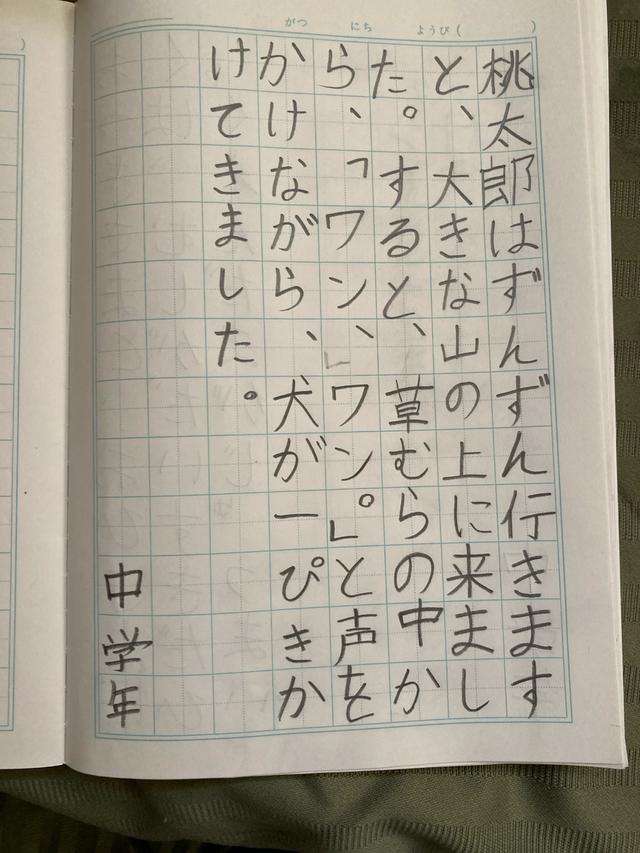 がつ にち ようび( )
桃太郎はずんずん行きます
と、大きな山の上に来まし
た。すると、草むらの中か
ら、「ワン、ワン。」と声を
かけながら、犬が一ぴきか
けてきました。
中学年
)